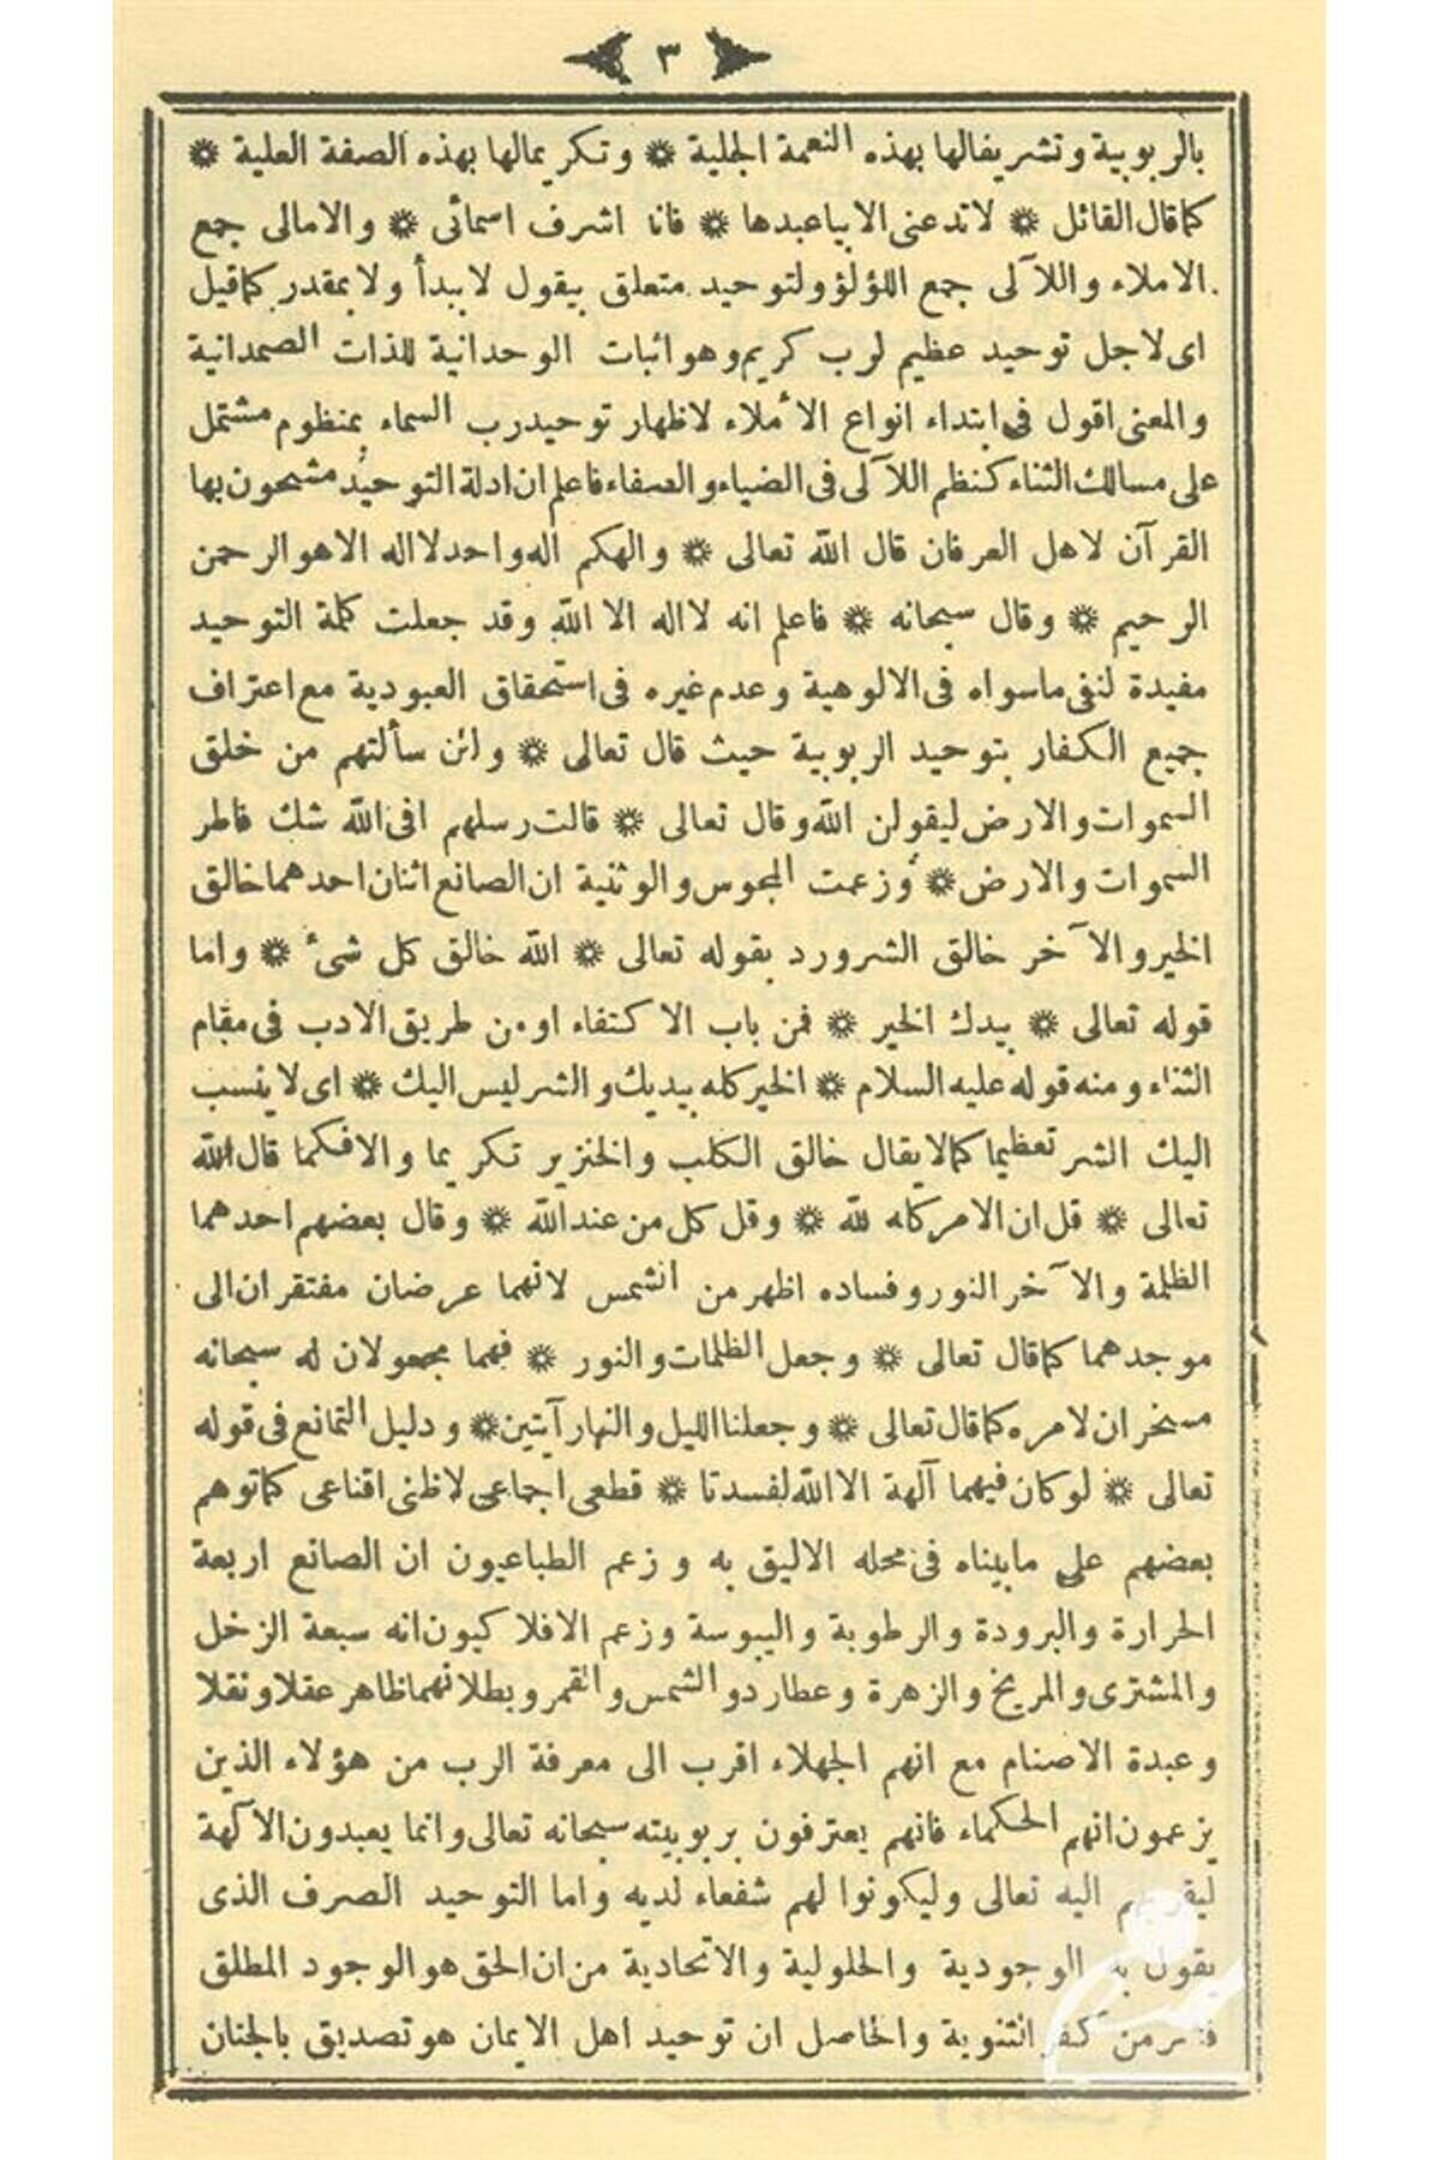 ٣
بالربوبية وتشريفالها بهذه النعمة الجلية ❋ وتكريمالها بهذه الصفة العلية ❋
كماقال القائل ❋ لاتدعنى الابياعبدها ❋ فانا اشرف اسمائى ❋ والامالى جمع
الاملاء واللآلى جمع اللؤلؤ ولتوحيد متعلق بيقول لابيدأ ولا بمقدر كماقيل
اى لاجل توحيد عظيم لرب كريم وهو اثبات الوحدانية للذات الصمدانية
والمعنى اقول فى ابتداء انواع الأملاء لاظهار توحيد رب السماء بمنظوم مشتمل
على مسالك الثناء كنظم اللآلى فى الضياء والصفاء فاعلم ان ادلة التوحيد مشحون بها
القرآن لاهل العرفان قال الله تعالى ❋ والهكم اله واحد لااله الاهو الرحمن
الرحيم ❋ وقال سبحانه ❋ فاعلم انه لااله الا الله وقد جعلت كلمة التوحيد
مفيدة لنفى ماسواه فى الالوهية وعدم غيره فى استحقاق العبودية مع اعتراف
جميع الكفار بتوحيد الربوبية حيث قال تعالى ❋ ولئن سألتهم من خلق
السموات والارض ليقولن الله وقال تعالى ❋ قالت رسلهم افى الله شك فاطر
السموات والارض ❋ وزعمت المجوس والوثنية ان الصانع اثنان احدهما خالق
الخير والآخر خالق الشر ورد بقوله تعالى ❋ الله خالق كل شئ ❋ واما
قوله تعالى ❋ بيدك الخير ❋ فمن باب الاكتفاء او من طريق الادب فى مقام
الثناء ومنه قوله عليه السلام ❋ الخير كله بيديك والشر ليس اليك ❋ اى لا ينسب
اليك الشر تعظيما كمالايقال خالق الكلب والخنزير تكريما والافكما قال الله
تعالى ❋ قل ان الامر كله لله ❋ وقل كل من عند الله ❋ وقال بعضهم احدهما
الظلمة والآخر النور وفساده اظهر من الشمس لانهما عرضان مفتقران الى
موجدهما كماقال تعالى ❋ وجعل الظلمات والنور ❋ فهما مجعولان له سبحانه
مسخران لامره كماقال تعالى ❋ وجعلنا الليل والنهار آيتين ❋ ودليل التمانع فى قوله
تعالى ❋ لوكان فيهما آلهة الا الله لفسدتا ❋ قطعى اجماعى لاظنى اقناعى كماتوهم
بعضهم على مابيناه فى محله الاليق به وزعم الطباعيون ان الصانع اربعة
الحرارة والبرودة والرطوبة واليبوسة وزعم الافلاكيون انه سبعة الزخل
والمشترى والمريخ والزهرة وعطارد والشمس والقمر وبطلانهما ظاهر عقلا ونقلا
وعبدة الاصنام مع انهم الجهلاء اقرب الى معرفة الرب من هؤلاء الذين
يزعمون انهم الحكماء فانهم يعترفون بربوبيته سبحانه تعالى وانما يعبدون الآلهة
ليقربهم اليه تعالى وليكونوا لهم شفعاء لديه واما التوحيد الصرف الذى
يقول به الوجودية والحلولية والاتحادية من ان الحق هو الوجود المطلق
من كفر الثنوية والحاصل ان توحيد اهل الايمان هو تصديق بالجنان